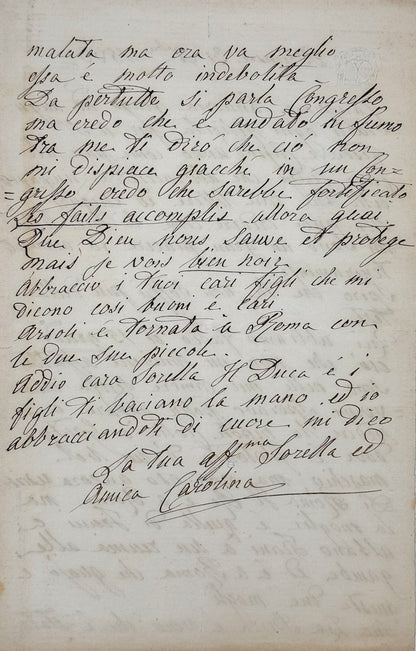 malata ma ora va meglio
essa é molto indebolita
Da pertutto si parla Congresso
ma credo che è andato in fumo
tra me ti diró che ció non
mi dispiace giacchè in un Con=
=gresso credo che sarebbe fortificato
les faits accomplis allora guai
Que Dieu nous sauve et protege
mais je vois bien noir
Abbraccio i tuoi cari figli che mi
dicono cosi buoni é cari
Arsoli é tornata à Roma con
le due sue piccole.
Addio cara Sorella Il Duca é i
figli ti baciano la mano ed io
abbracciandoti di cuore mi dico
La tua affma Sorella ed
Amica Carolina